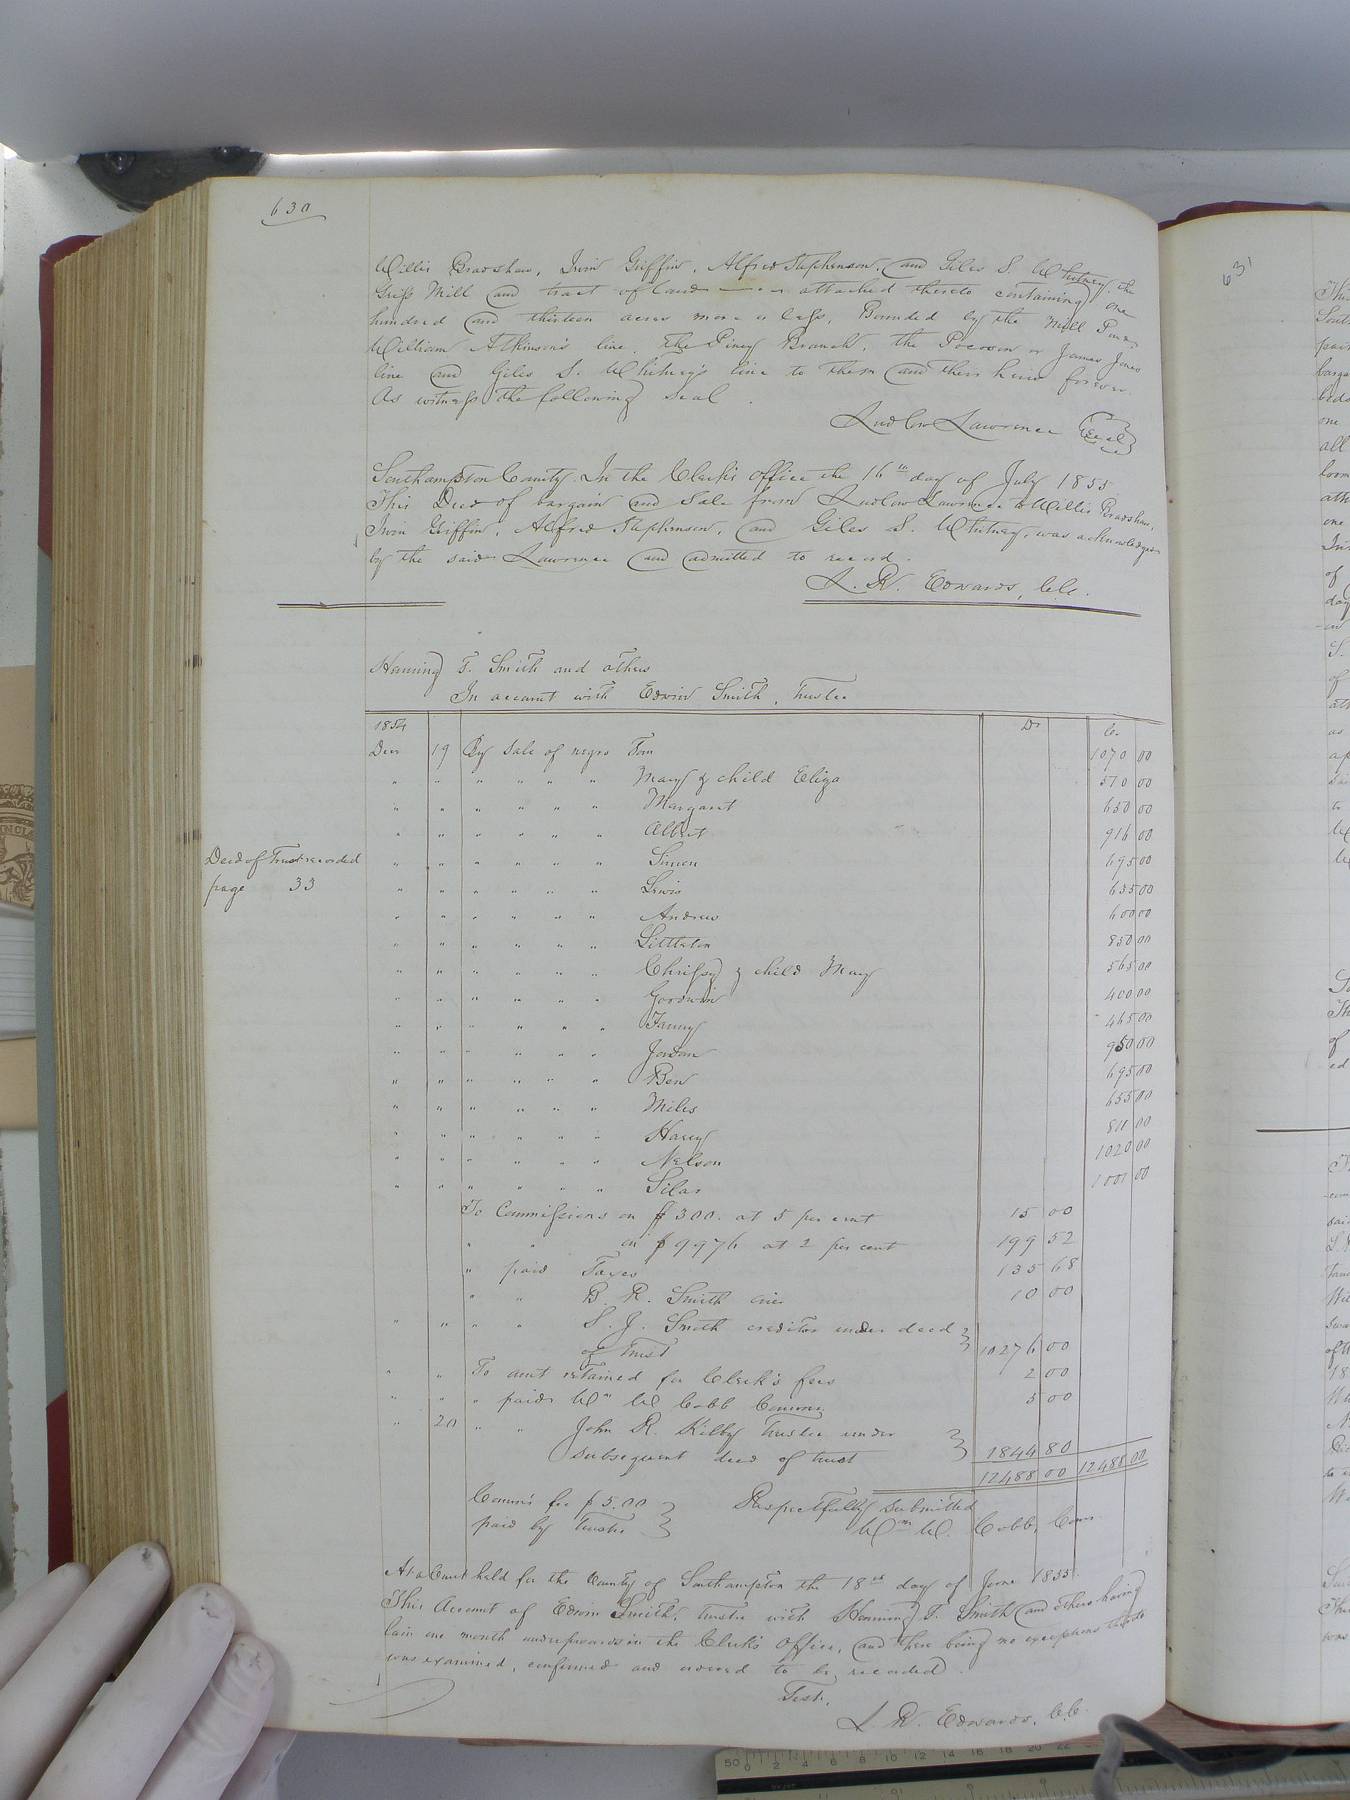 630
Willis Bradshaw, Irvin Griffin, Alfred Stephenson, and Giles S. Whitney, the
Grist Mill and tract of land attached thereto containing one
hundred and thirteen acres more or less, Bounded by the Mill Pond,
William Atkinson's line, the Piney Branch, the Pocoson or James Jones
line and Giles S. Whitney's line to them and their heirs forever
As witness the following seal.
Ludlow Lawrence Seal
Southampton County. In the Clerk's office the 16th day of July 1855
This Deed of bargain and Sale from Ludlow Lawrence to Willis Bradshaw,
Irvin Griffin, Alfred Stephenson, and Giles S. Whitney, was acknowledged
by the said Lawrence and admitted to record.
L. R. Edwards, C.C.
Henning T. Smith and others
In account with Edwin Smith, Trustee
1854 Dr Cr
Decr 19 By Sale of negro Tom 1070 00
" " " " " " Mary & child Eliza 510 00
" " " " " " Margaret 650 00
" " " " " " Albert 916 00
Deed of Trust recorded
page 33
" " " " " " Simon 695 00
" " " " " " Lewis 635 00
" " " " " " Andrew 600 00
" " " " " " Littleton 850 00
" " " " " " Chrissy & child Mary 565 00
" " " " " " Goodwin 400 00
" " " " " " Fanny 465 00
" " " " " " Jordan 950 00
" " " " " " Ben 695 00
" " " " " " Miles 655 00
" " " " " " Harry 811 00
" " " " " " Nelson 1020 00
" " " " " " Silas 1001 00
To Commissions on $300. at 5 per cent 15 00
" " on $9976 at 2 per cent 199 52
" paid Taxes 135 68
" " B. R. Smith 10 00
" " " " S. J. Smith creditor under deed
of trust 10276 00
" " To amt retained for Clerk's fees 2 00
" " " paid Wm W Cobb Commr. 5 00
" 20 " " John R. Kilby Trustee under
subsequent deed of trust 1844 80
12488 00 12488 00
Comm's fee $5.00
paid by Trustee
Respectfully submitted
Wm W. Cobb, Com
At a Court held for the County of Southampton the 18th day of June 1855.
This Account of Edwin Smith, trustee with Henning T. Smith and others having
lain one month and upwards in the Clerk's Office, and there being no exceptions thereto
was examined, confirmed and ordered to be recorded.
Test.
L. R. Edwards, C.C.
631